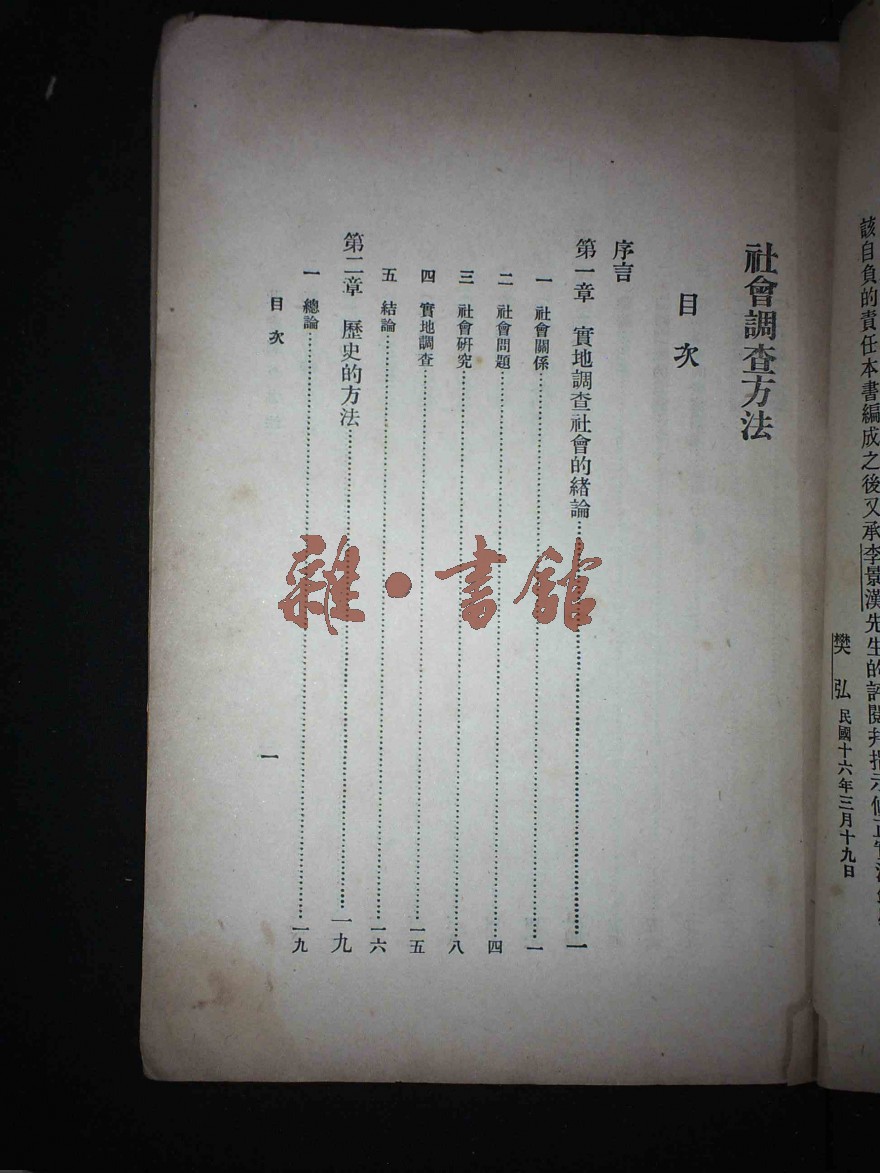 該自負的責任本書編成之後又承李景漢先生的評閱并指示修正實
樊弘 民國十六年三月十九日
社會調查方法
目次
序言
第一章 實地調查社會的緒論……一
一 社會關係……一
二 社會問題……四
三 社會研究……八
四 實地調查……一五
五 結論……一六
第二章 歷史的方法……一九
一 總論……一九
目次
一
雜·書館